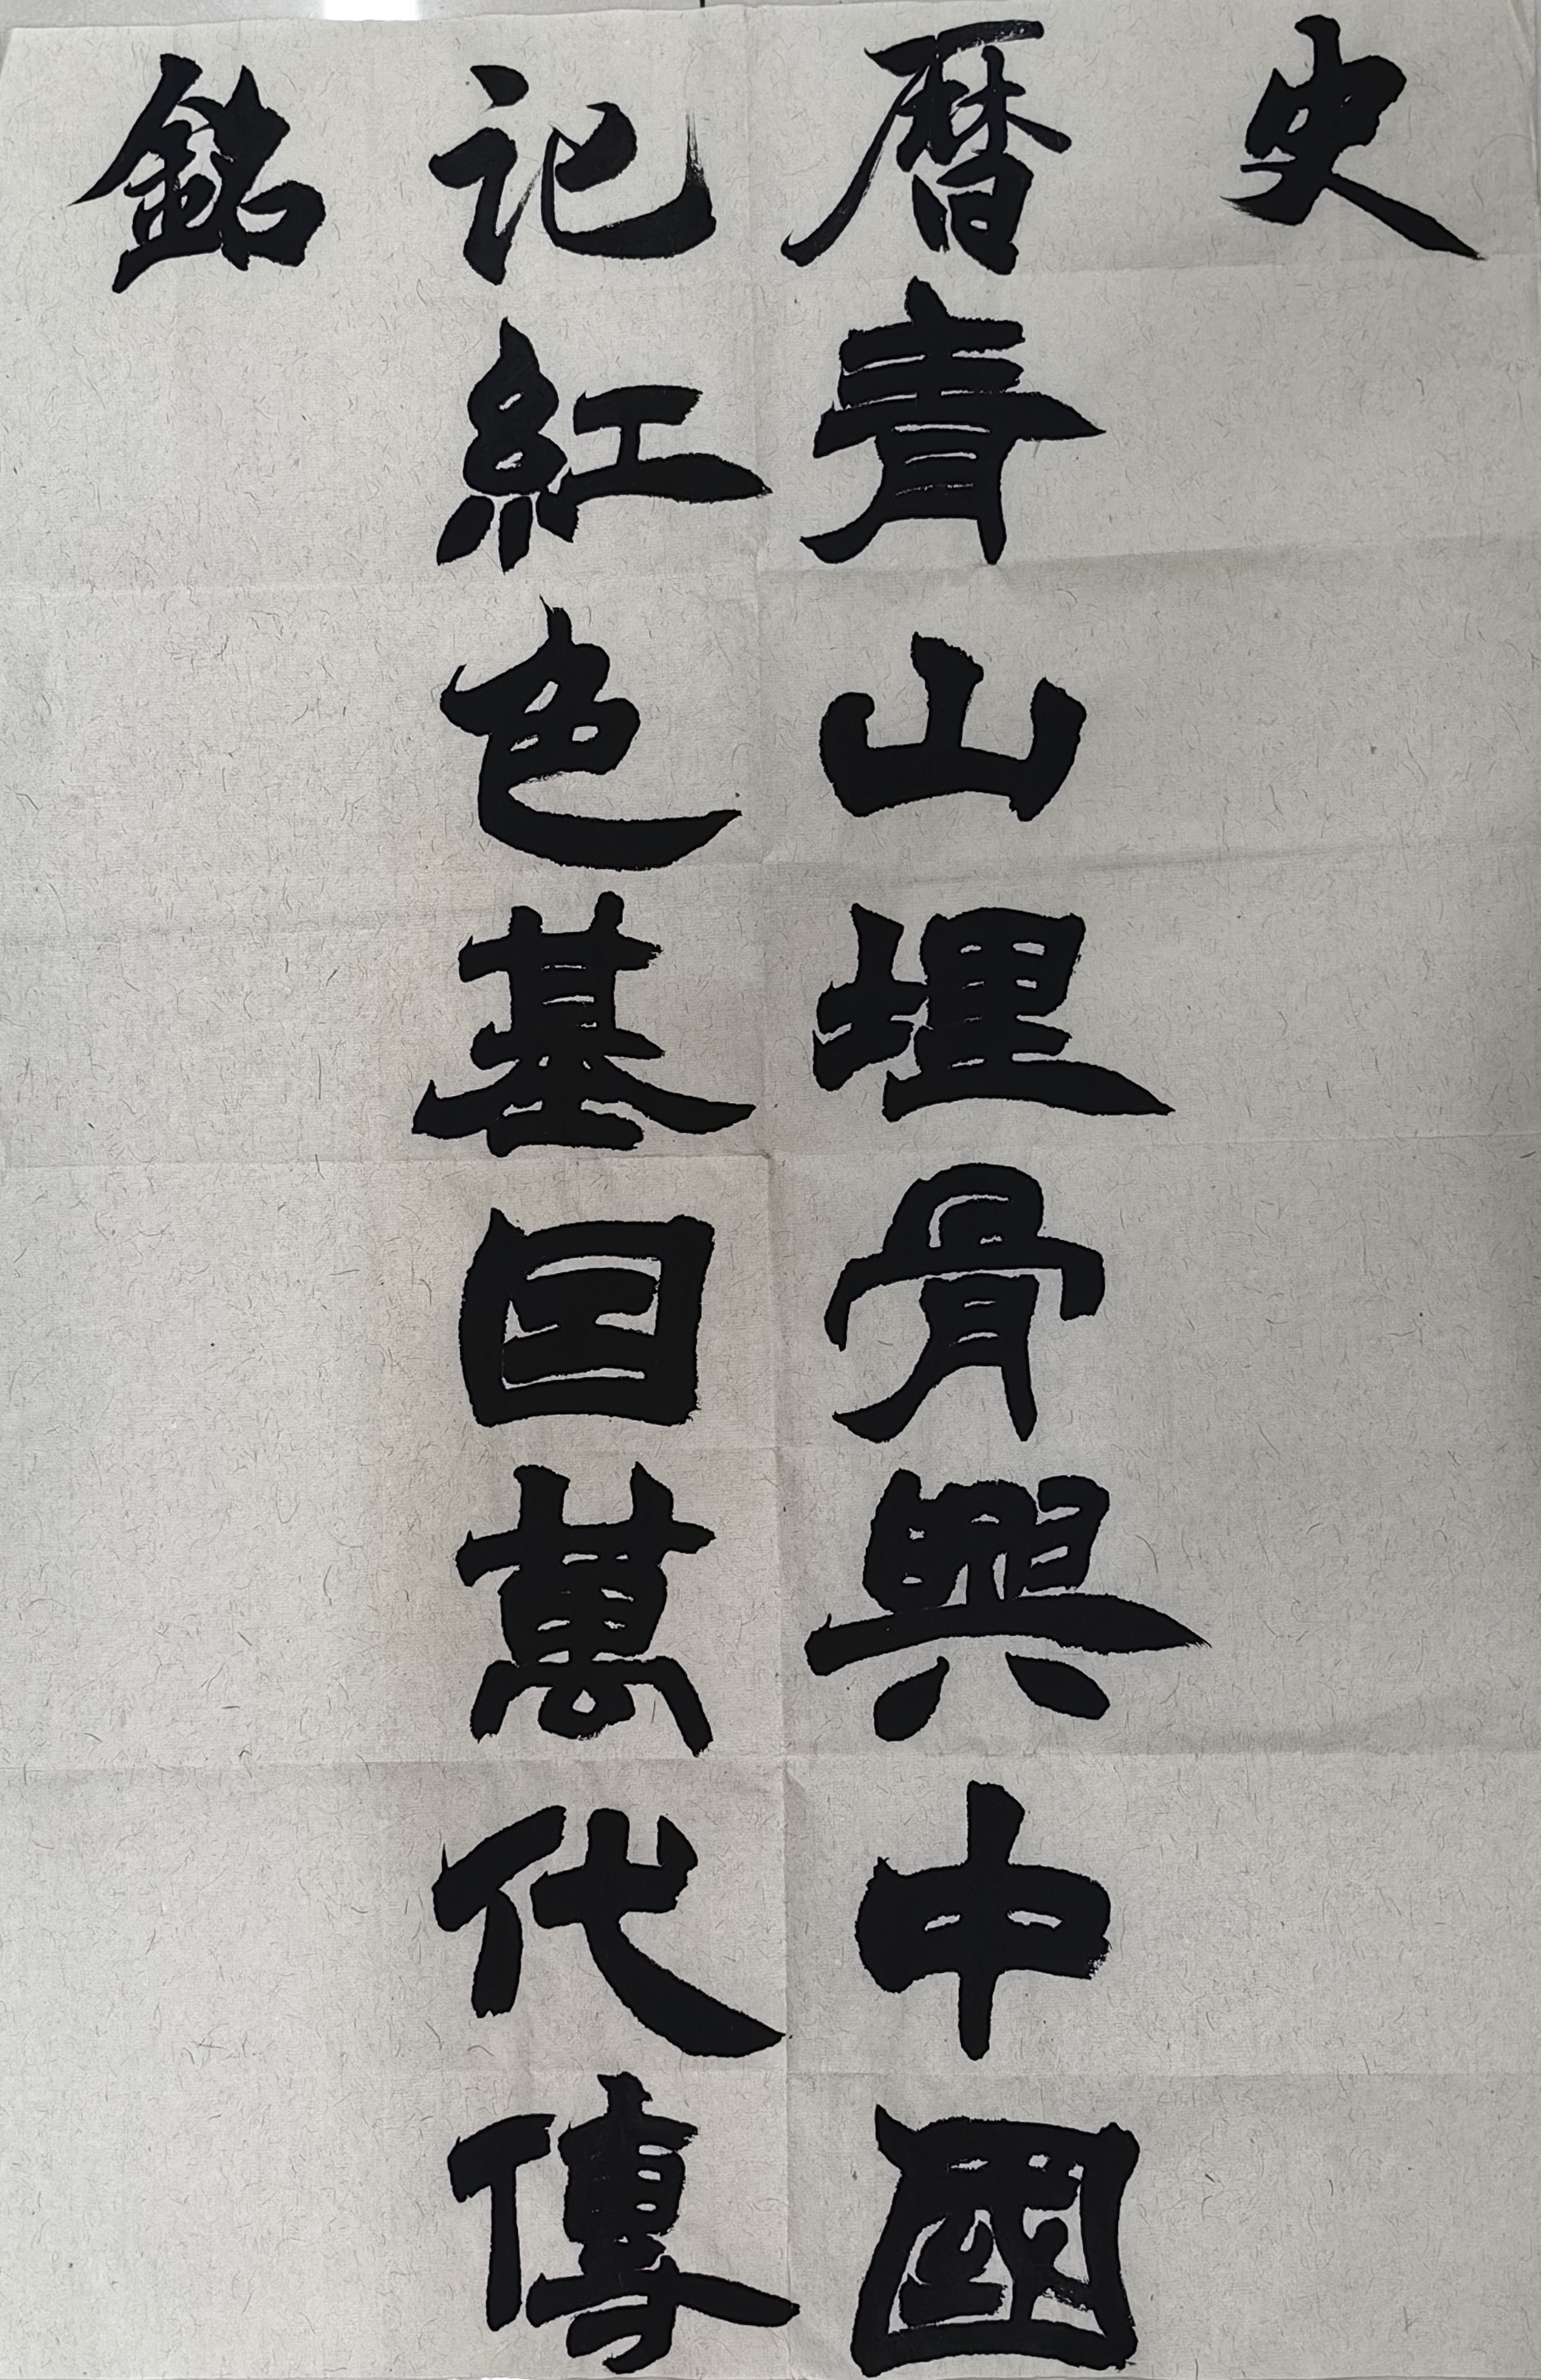 銘記暦史
青山埋骨興中國
紅色基囙萬代傳